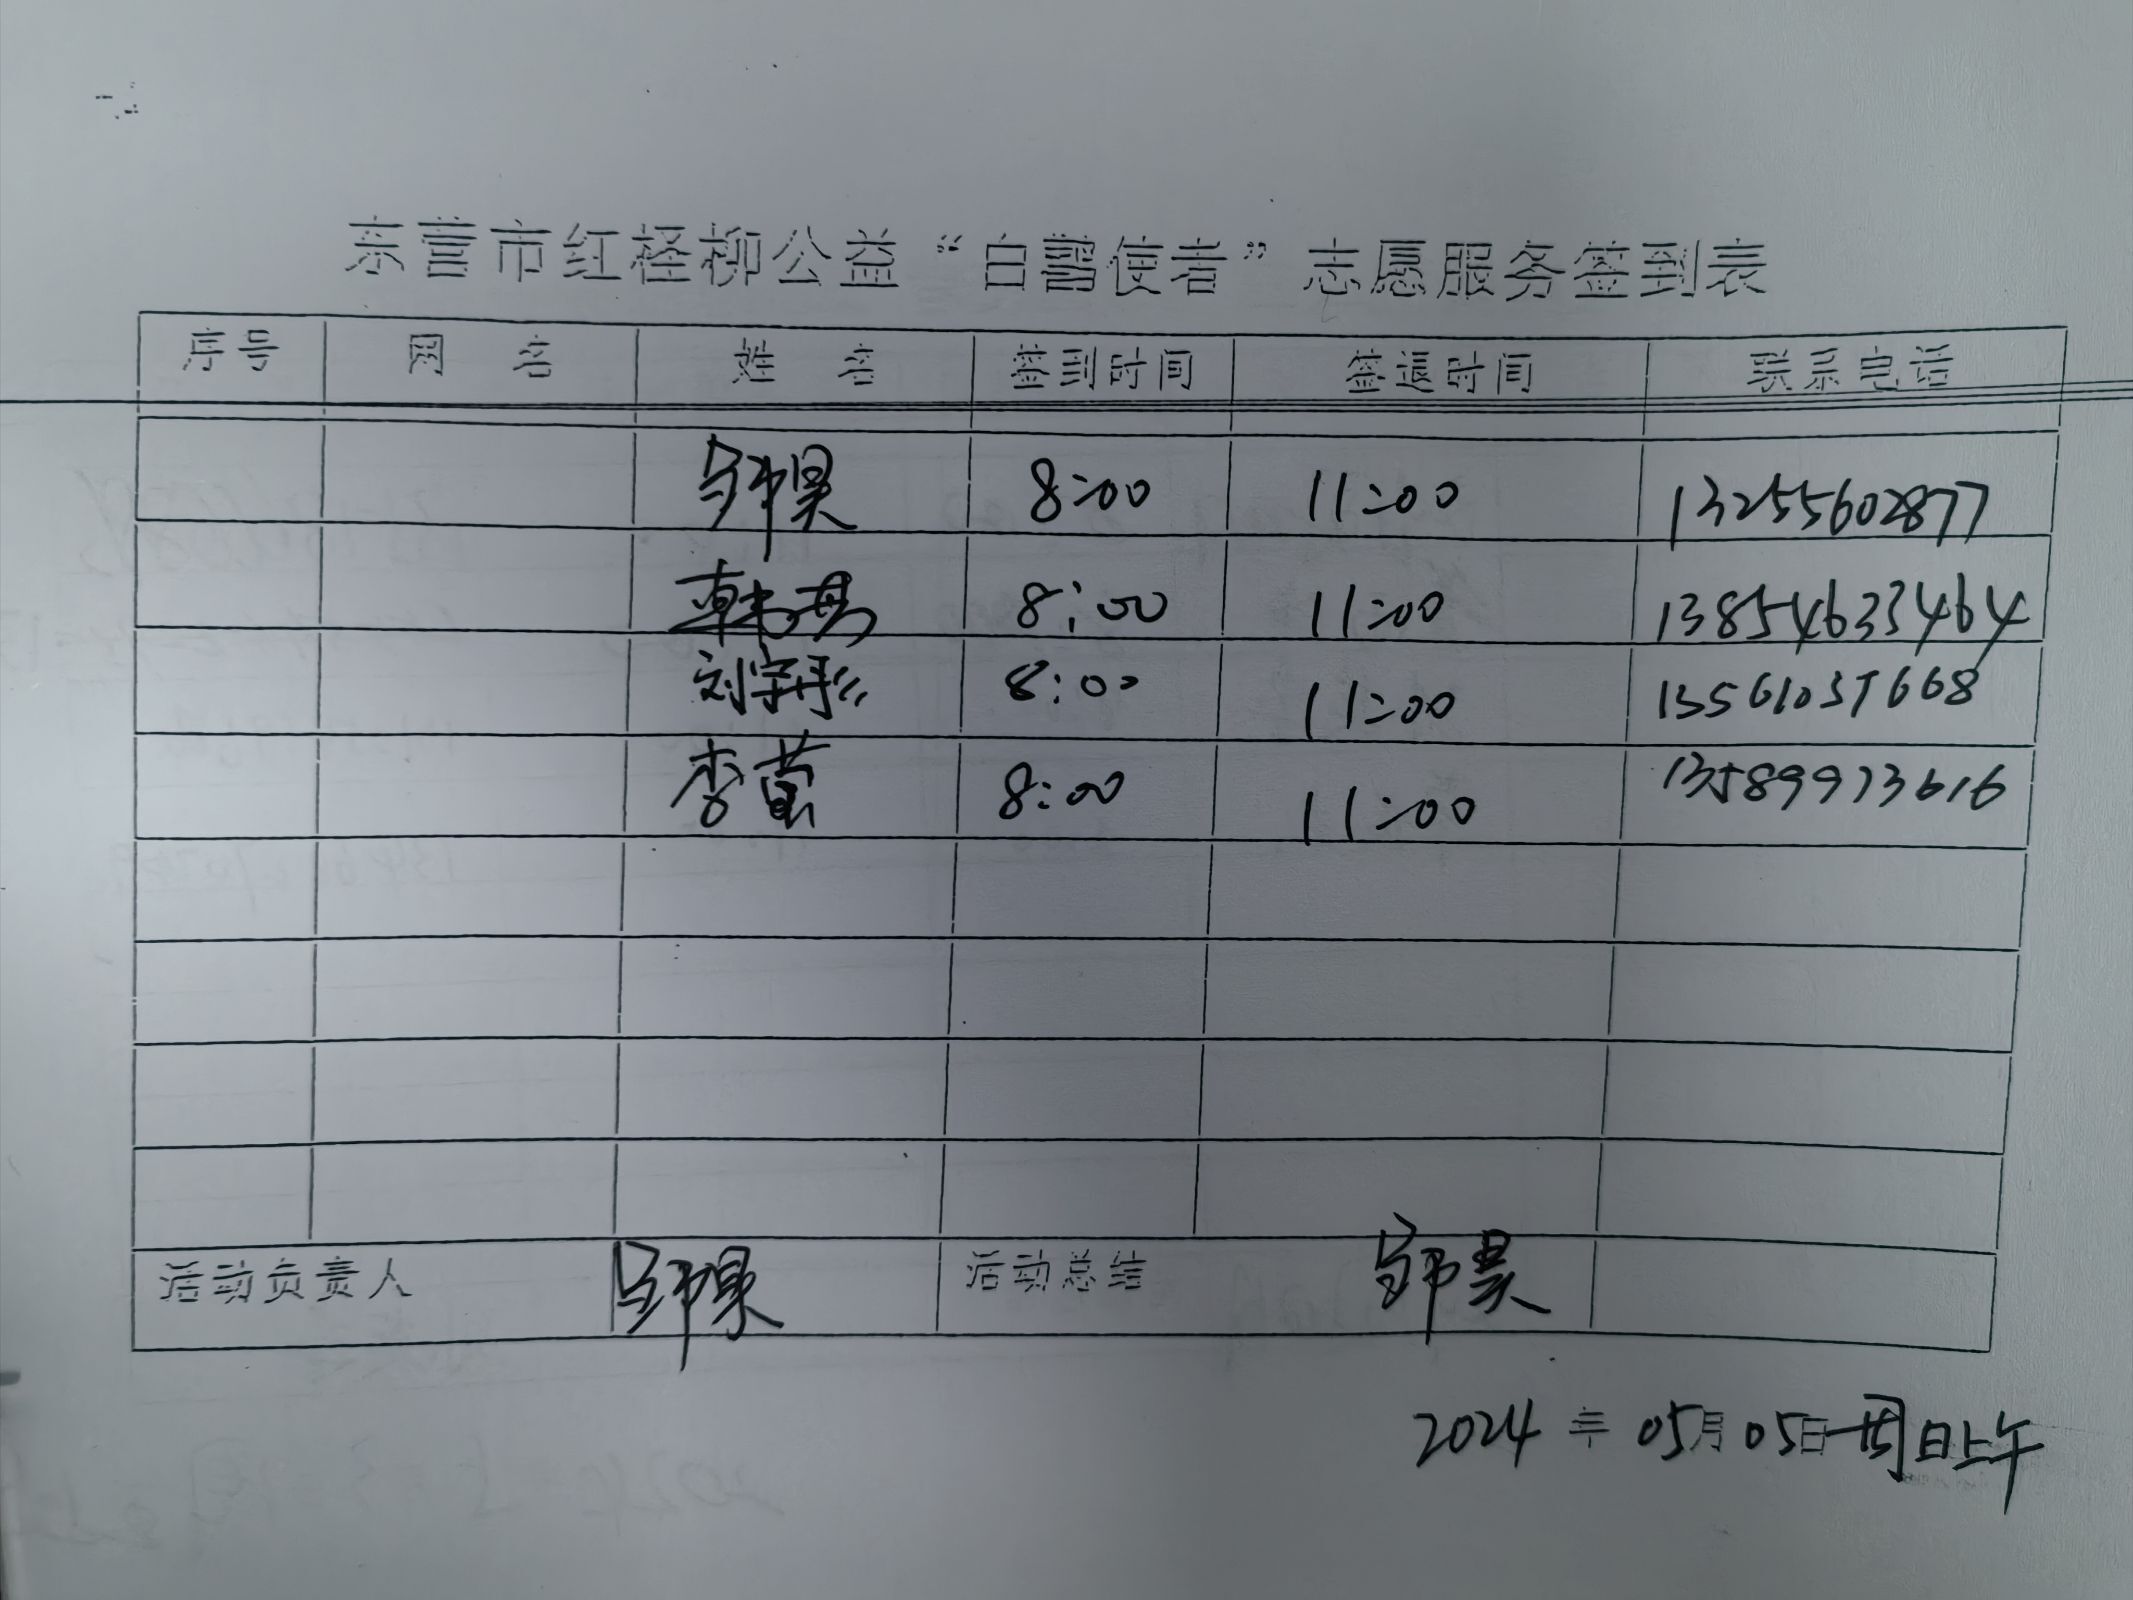 东营市红柽柳公益“白鹭使者”志愿服务签到表
序号 网 名 姓 名 签到时间 签退时间 联系电话
8:00 11:00 13255602877
韩 8:00 11:00 13854633464
刘宇彤 8:00 11:00 13561037668
李 8:00 11:00 13589973616
活动负责人 活动总结
2024 年 05月 05日 周日上午